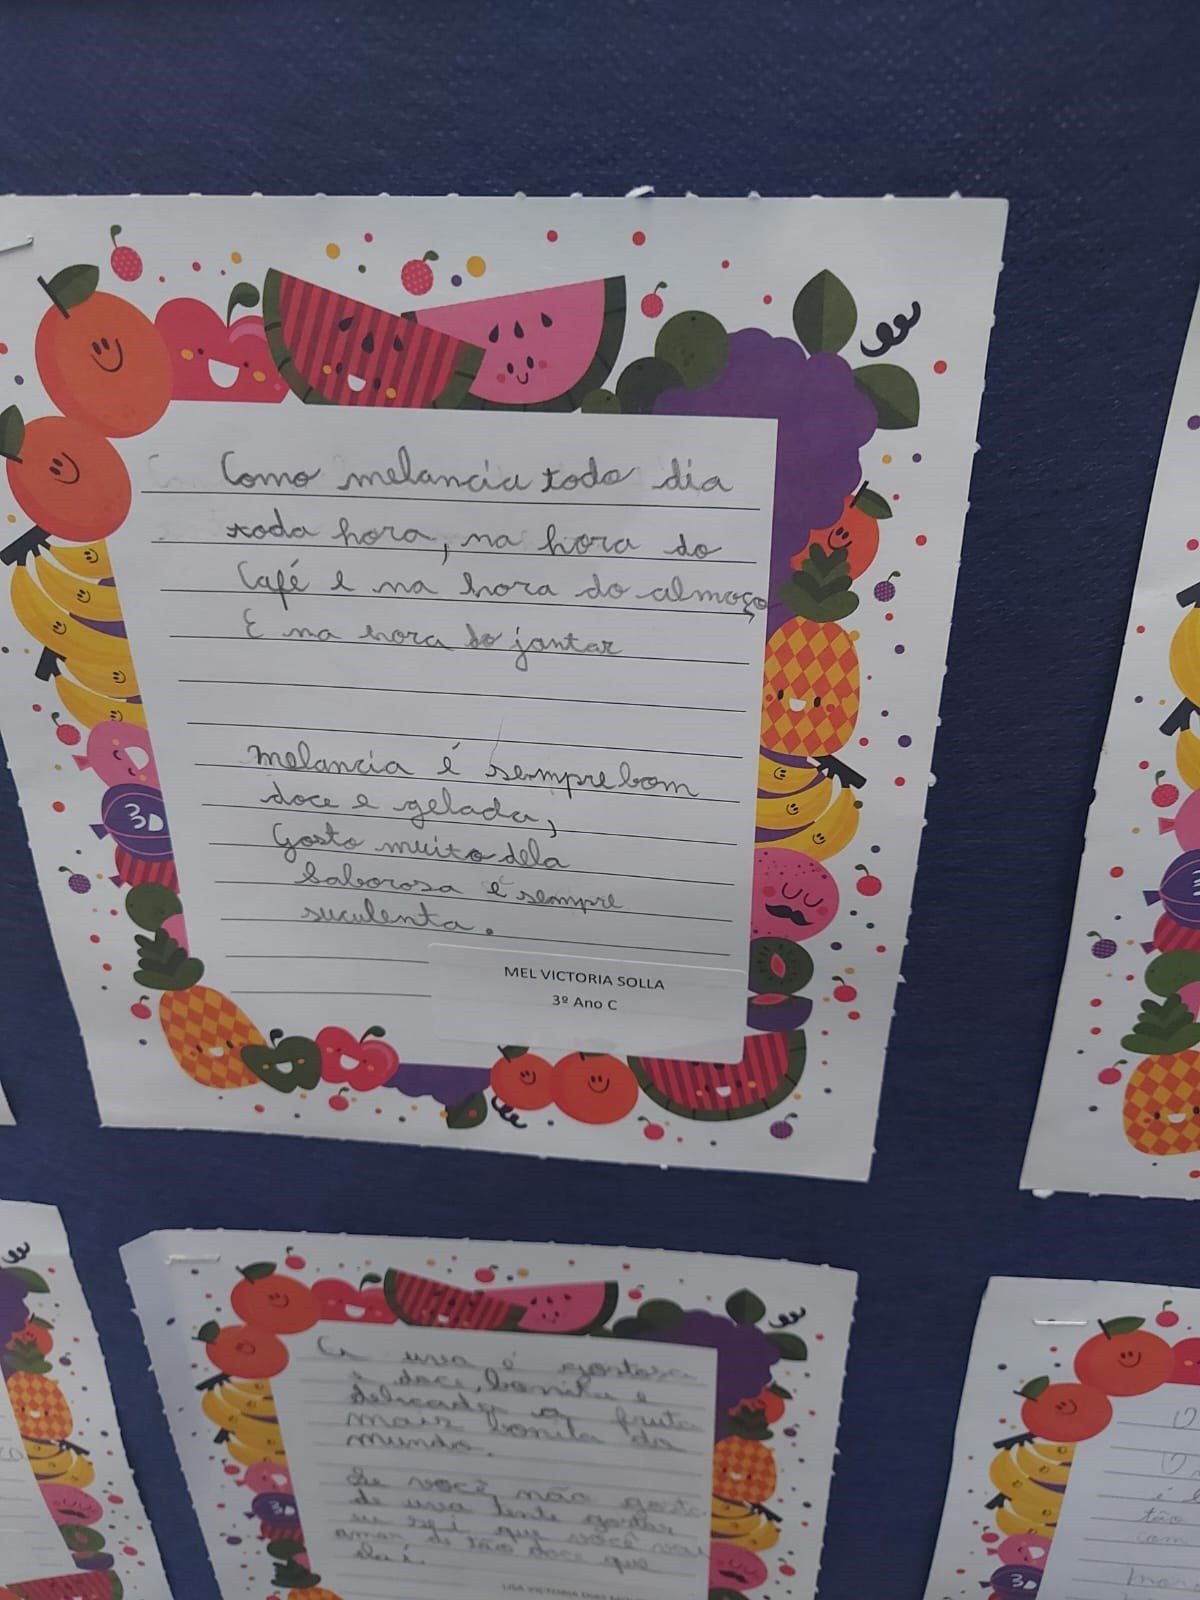 Como melancia todo dia
toda hora, na hora do
Café e na hora do almoço
E na hora do jantar
Melancia é sempre bom
doce e gelada,
Gosto muito dela
Saborosa é sempre
suculenta.
MEL VICTORIA SOLLA
3º Ano C
A uva é gostosa
é doce, bonita e
delicada a fruta
mais bonita do
mundo.
Se você não gosta
de uva tente gostar
eu sei que você vai
amar de tão doce que
ela é.
LISA VICTORIA
O
é
tão
com